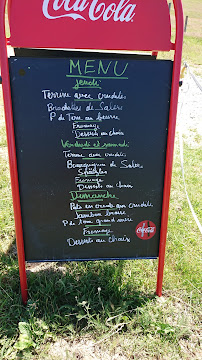 Coca-Cola
MENU
Jeudi
Terrine avec crudités
P de Terre au beurre
Fromage
Desserts au choix
Vendredi et samedi
Terrine avec crudités
Fromage
Desserts au choix
Dimanche
Paté en croute avec crudités
Jambon braisé
P de Terre grand mère
Fromage
Desserts au choix
Coca-Cola